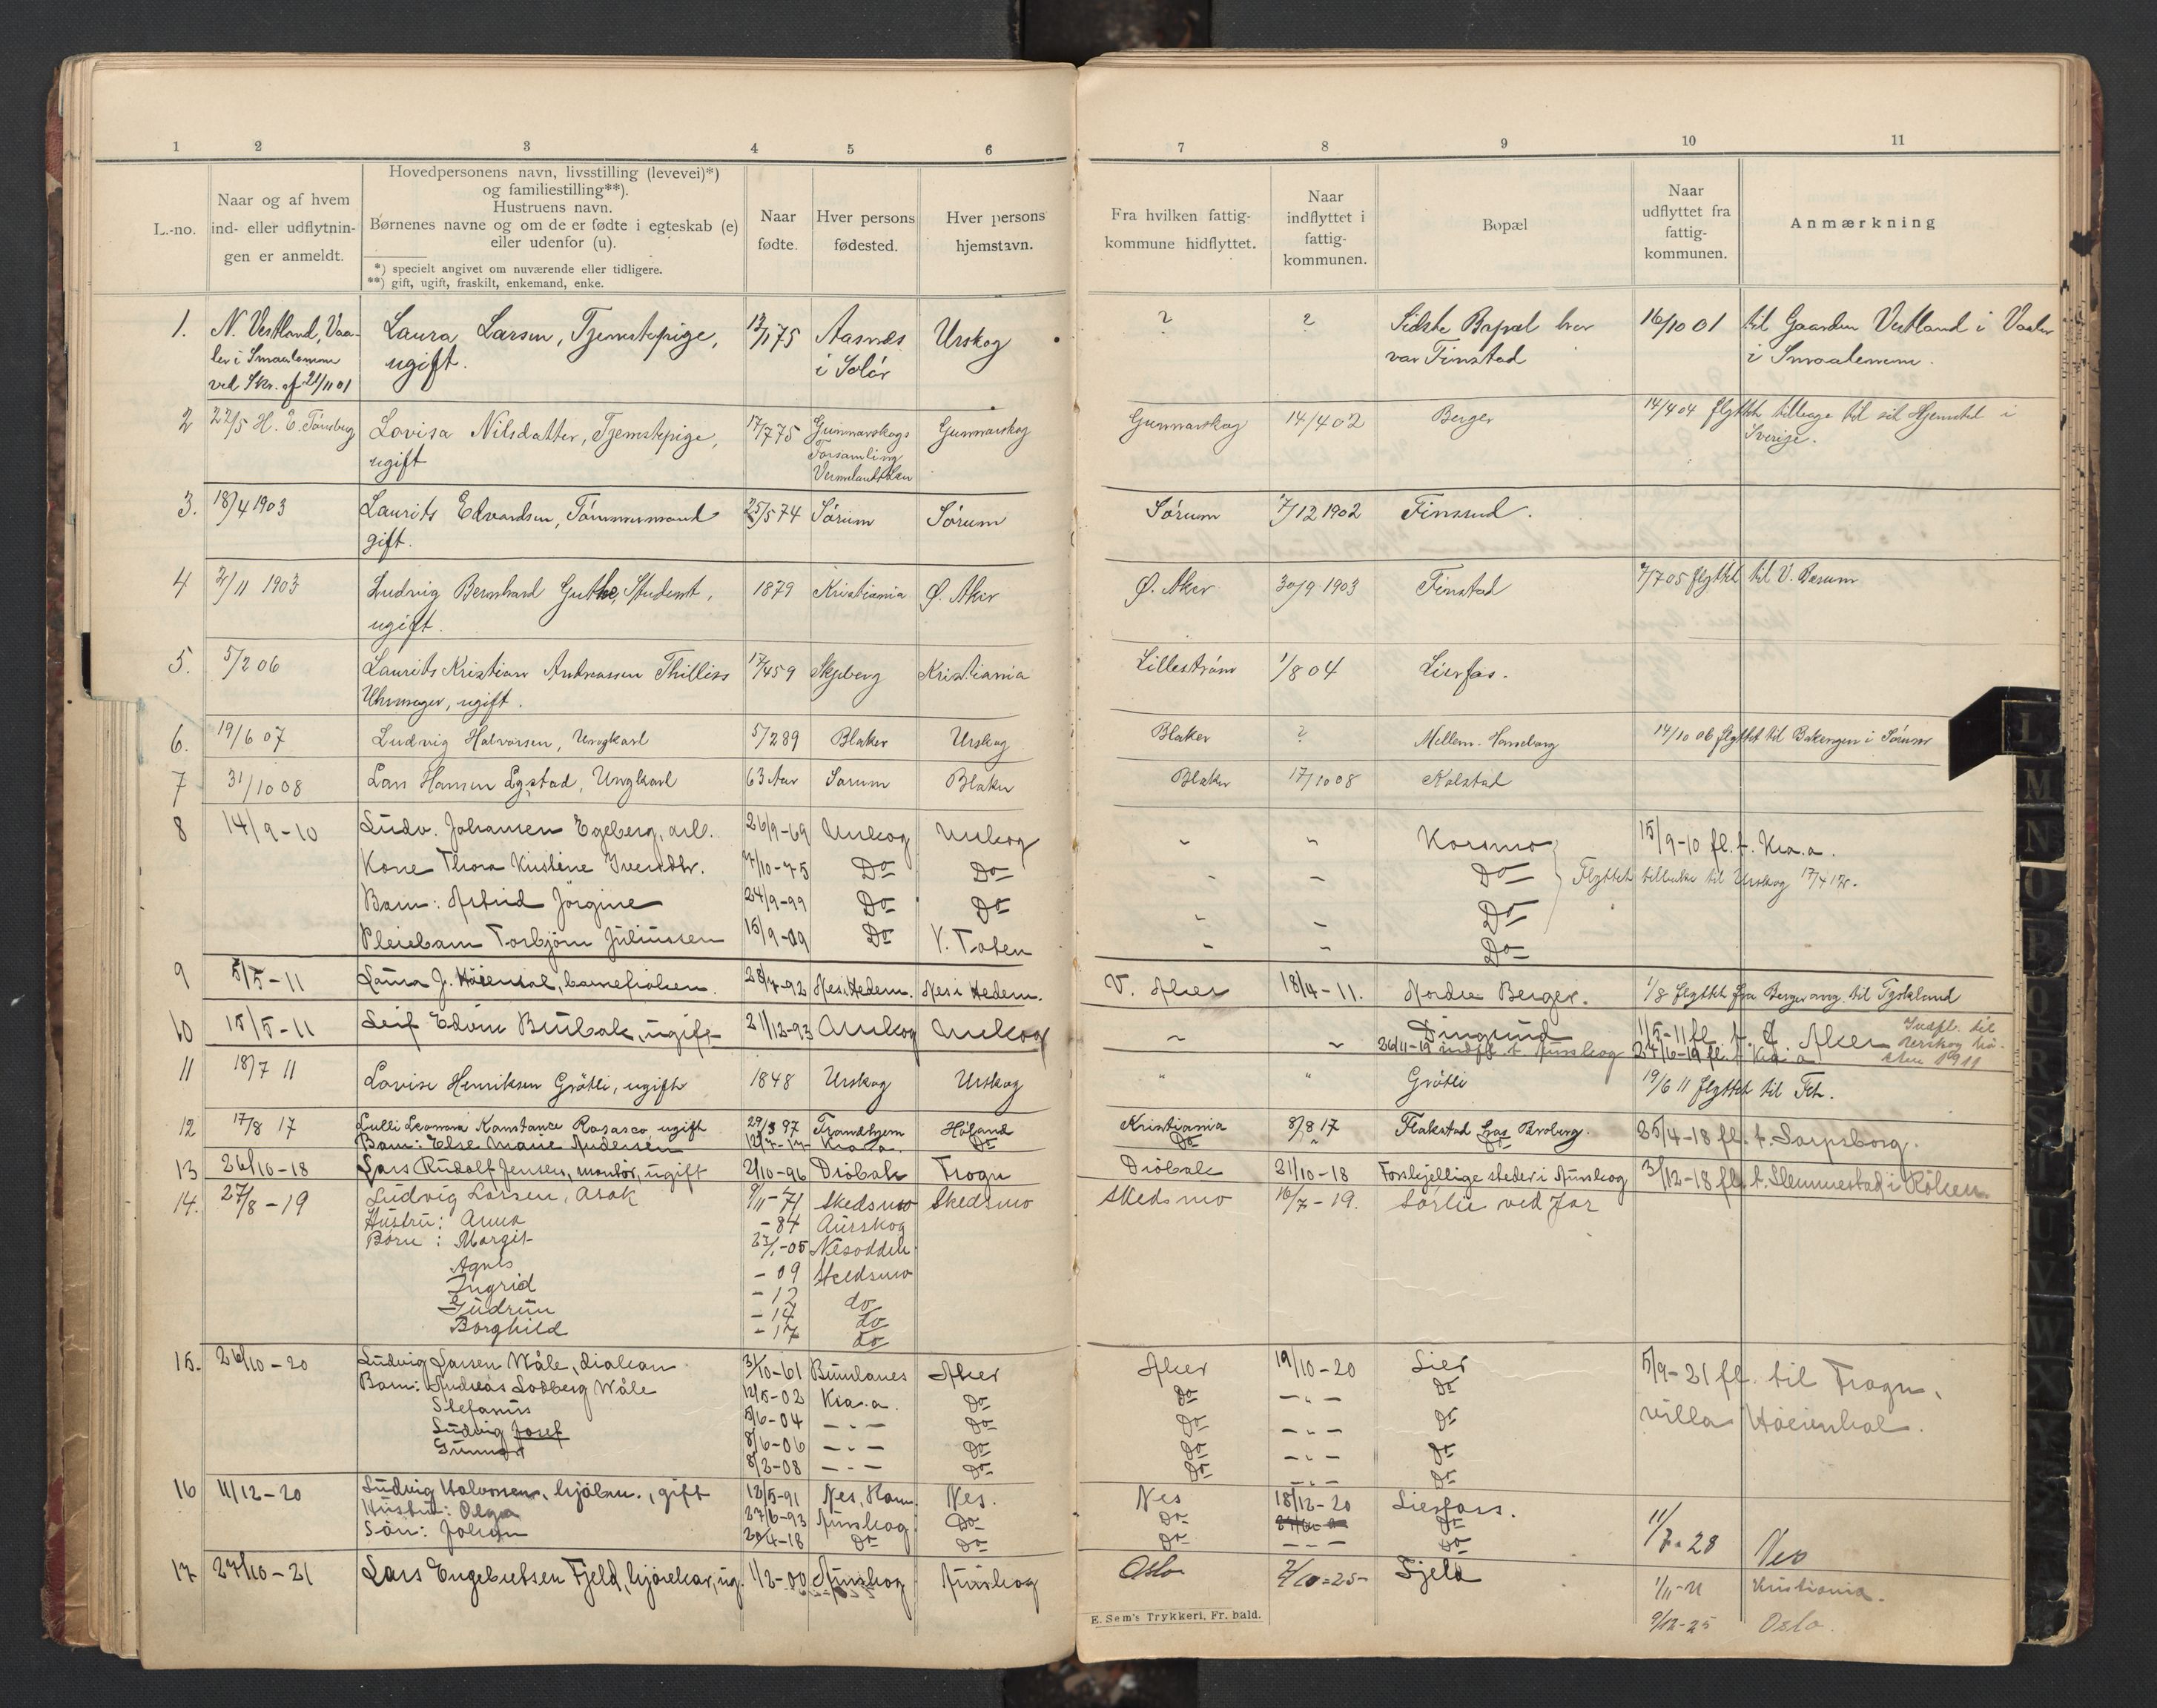 1 2 3 4 5 6
L.-no.
Naar og af hvem
ind- eller udflytnin-
gen er anmeldt.
Hovedpersonens navn, livsstilling (levevei)*)
og familiestilling**).
Hustruens navn.
Børnenes navne og om de er fødte i egteskab (e)
eller udenfor (u).
*) specielt angivet om nuværende eller tidligere.
**) gift, ugift, fraskilt, enkemand, enke.
Naar
fødte.
Hver persons
fødested.
Hver persons
hjemstavn.
1. N. Vestland, Vaa- Laura Larsen, Tjenestepige, Aasnes Urskog
ler i Smaalenene ugift. i Solør
ved Skr. af 21/11 01
2 22/5 H. E. Tønsberg Lovisa Nilsdatter, Tjenstepige, 17/7 75 Gunnarskogs Gunnarskog
ugift Forsamling
3. 18/4 1903 Laurits Edvardsen, Tømmermand 25/5 74 Sørum Sørum
gift.
4 2/11 1903 Ludvig Bernhard Guthe, Student, 1879 Kristiania Ø. Aker
ugift.
5. 5/2 06 Laurits Kristian Andreassen 17/4 59 Skjeberg Kristiania
Uhrmager, ugift.
6. 19/6 07 Ludvig Halvorsen, Ungkarl 5/2 89 Blaker Urskog
7 31/10 08 Lars Hansen Egstad, Ungkarl 63 Aar Sørum Blaker
8 14/9-10 Ludv. Johansen Egeberg, arb. 26/9-69 Urskog Urskog
Kone Thora Kristine Iversdtr. 7/10-75 Do Do
Barn: Astrid Jörgine 24/9-99 Do Do
Pleiebarn Torbjörn Juliussen 15/9-09 Do V. Toten
9 5/5-11 Laura J. Höiendal, barnefröken. 28/7-92 Nes i Hedem. Nes i Hedem.
10 15/5-11 Leif Edvin Bunbak, ugift 21/12-93 Aurskog Aurskog
11 18/7 11 Lovise Henriksen Grøtli, ugift 1848 Urskog Urskog
12 17/8 17 Lulli Leonora Konstanze Rosasco ugift 29/3 97 Trondhjem Høland
Barn: Else Marie Andersen Kra.a. Do
13 26/10-18 Lars Rudolf Jensen, montör, ugift 2/10-96 Dröbak Frogn
14. 27/8-19 Ludvig Larsen, Asak 9/11-71 Skedsmo Skedsmo
Hustru: Anna -84 Aurskog
Börn: Margit 23/1-05 Nesodden
Agnes -09 Skedsmo
Ingrid -12 do
Gudrun -14 do
Borghild -17 do
15. 26/10-20 Ludvig Larsen Wåle, diakon 3/10-61 Brunlanes Aker
Barn: Andreas Lodberg Wåle 12/5-02 Kra.a. Do
Stefanus 5/6-04 -"- Do
Ludvig Josef 8/6-06 -"- Do
Gunnar 8/2-08 -"- Do
16 11/12-20 Ludvig Halvorsen, hjölm., gift 12/5-91 Nes, Ham. Nes.
Hustru: Olga 27/6-93 Aurskog Do
Sön: Johan 20/4-18 Do Do
17 27/10-21 Lars Engebretsen Fjeld, kjörekar, ug. 1/2-00 Aurskog Aurskog
7 8 9 10 11
Fra hvilken fattig-
kommune hidflyttet.
Naar
indflyttet i
fattig-
kommunen.
Bopæl
Naar
udflyttet fra
fattig-
kommunen.
Anmærkning
? ? Sidste Bopæl her 16/10 01 til Gaarden Vestland i Vaaler
var Finstad i Smaalenene.
Gunnarskog 14/4 02 Berger 14/4 04 flyttet tilbage til sit Hjemsted i
Sverige.
Sørum 7/12 1902 Finsrud.
Ø. Aker 30/9 1903 Finstad 7/7 05 flyttet til V. Bærum
Lillestrøm 1/8 04 Lierfos.
Blaker ? Mellem-Haneborg 14/10 06 flyttet til Bakengen i Sørum
Blaker 17/10 08 Kolstad
" " Korsmo 15/9-10 fl. t. Kra.a.
" " Do Flyttet tilbake til Urskog 17/4
" " Do
" " Do
V. Aker 18/4-11. Nordre Berger. 1/8 flyttet fra Berger ang. til Tyskland
" " Dingsrud 1/5-11 fl. t. Aker
26/11-19 indfl. t. Aurskog fl. t. Kra.a
" " Grøtli 19/6 11 flyttet til Fet.
Kristiania 8/8 17 Flakstad Broberg. 25/4-18 fl. t. Sarpsborg.
Do " Do
Dröbak 21/10-18 Forskjellige steder i Aurskog 3/12-18 fl. t. Slemmestad i Röken.
Skedsmo 16/7-19. Sörlie ved Jar
Aker 19/10-20 Lier 5/9-21 fl. til Frogn,
Do -"- Do villa Höienhal.
Do -"- Do
Do -"- Do
Do -"- Do
Nes 18/12-20 Lierfoss.
Do Do 11/7-28 Nes
Do --- Do
Oslo 2/10-25- Fjeld 1/11-21 Kristiania.
9/12-25 Oslo.
E. Sem's Trykkeri, Fr. hald.
I
M
N
O
P
Q
R
S
T
U
V
W